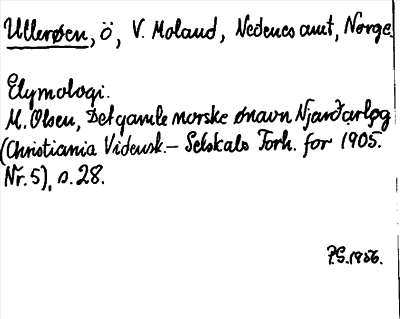 Ullerøen, ö, V. Moland, Nedenes amt, Norge.
Etymologi.
M. Olsen, Det gamle norske ønavn Njarðarlǫg
(Christiania Vidensk.- Selskabs Forh. for 1905.
Nr. 5), s. 28.
P.G. 1956.